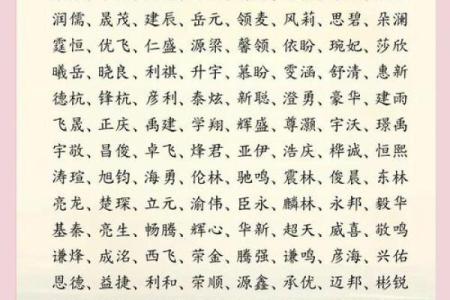 润儒、晟茂、建辰、岳元、领麦、风莉、思碧、朵澜
霆恒、优飞、仁盛、源梁、馨领、依盼、琬妃、莎欣
曦岳、晓良、利祺、升宇、慕盼、雯涵、舒清、惠新
德杭、锋杭、彦利、泰炫、新聪、澄勇、豪华、建雨
飞晟、正庆、禹建、学翔、辉盛、尊灏、宇沃、璟禹
宇敬、昌俊、卓飞、烽君、亚伊、浩庆、桦诚、恒熙
涛瑄、旭钧、海勇、伦林、驰鸣、震林、俊晨、东林
亮龙、楚琛、立元、渝伟、臣永、麟林、永邦、毅华
基秦、亮生、畅腾、辉心、华新、超天、威喜、敬鸣
谦烽、成洺、西飞、荣金、腾强、谦鸣、彦海、兴佑
恩德、益捷、利和、荣顺、源鑫、承优、迈邦、彬锐